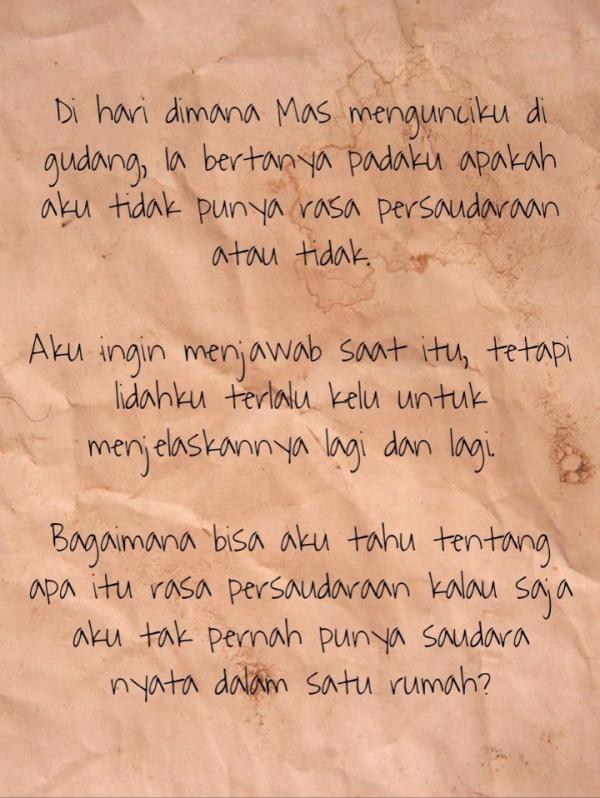 Di hari dimana Mas mengunciku di
gudang, Ia bertanya padaku apakah
aku tidak punya rasa persaudaraan
atau tidak.
Aku ingin menjawab saat itu, tetapi
lidahku terlalu kelu untuk
menjelaskannya lagi dan lagi.
Bagaimana bisa aku tahu tentang
apa itu rasa persaudaraan kalau saja
aku tak pernah punya saudara
nyata dalam satu rumah?